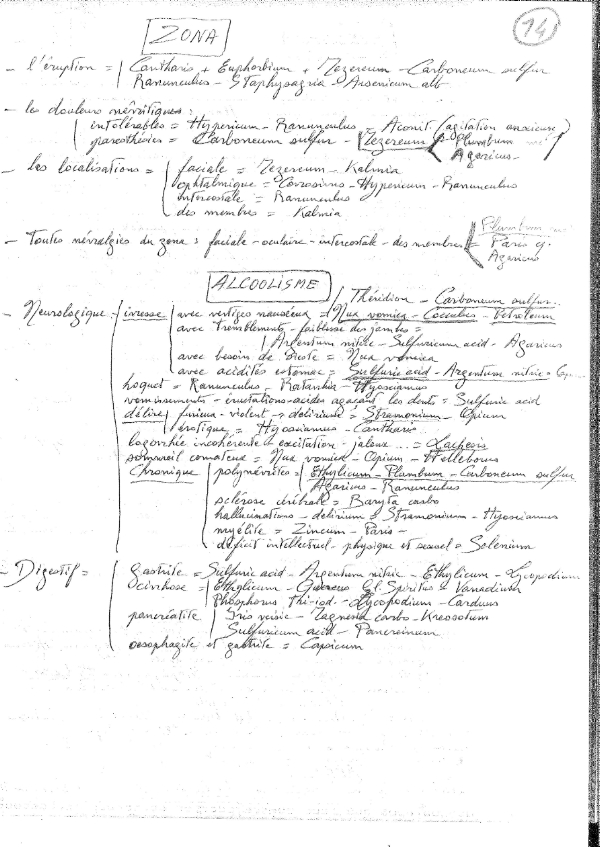 14
ZONA
- l'éruption = Cantharis + Euphorbium + Mezereum - Carboneum sulfur
Ranunculus - Staphysagria - Arsenicum alb
- les douleurs névritiques :
intolérables = Hypericum - Ranunculus - Aconit. (agitation anxieuse)
paresthésies = Carboneum sulfur - Mezereum - Plumbum
Agaricus -
- Les localisations = faciale = Mezereum - Kalmia
ophtalmique = Corrosivus - Hypericum - Ranunculus
intercostale = Ranunculus
des membres = Kalmia
- Toutes névralgies du zona : faciale - oculaire - intercostale - des membres = Plumbum
Paris q.
Agaricus
ALCOOLISME
- Neurologique : ivresse avec vertiges nauséeux = Nux vomica - Cocculus - Petroleum
Théridion - Carboneum sulfur..
avec tremblements - faiblesse des jambes =
Argentum nitric - Sulfuricum acid - Agaricus
avec besoin de sieste = Nux vomica
avec acidités estomac = Sulfuric acid - Argentum nitric =
hoquet = Ranunculus - Ratanhia - Hyosciamus
vomissements - éructations acides agaçant les dents = Sulfuric acid
délire furieux - violent → délirium = Stramonium - Opium
érotique = Hyosciamus - Cantharis..
logorrhée incohérente - excitation - jaloux ... = Lachesis
sommeil comateux = Nux vomica - Opium - Helleborus
Chronique polynévrites = Ethylicum - Plumbum - Carboneum sulfur
Agaricus - Ranunculus
sclérose cérébrale = Baryta carbo
hallucinations - délirium = Stramonium - Hyosciamus
myélite = Zincum - Paris -
déficit intellectuel - physique et sexuel = Selenium
- Digestif = gastrite = Sulfuric acid - Argentum nitric - Ethylicum - Lycopodium
cirrhose = Ethylicum - Quercus Gl. Spiritus - Vanadium
Phosphorus tri-iod. - Lycopodium - Carduus
pancréatite Iris versic - Magnesia carbo - Kreosotum
Sulfuricum acid - Pancreinum
oesophagite et gastrite = Capsicum